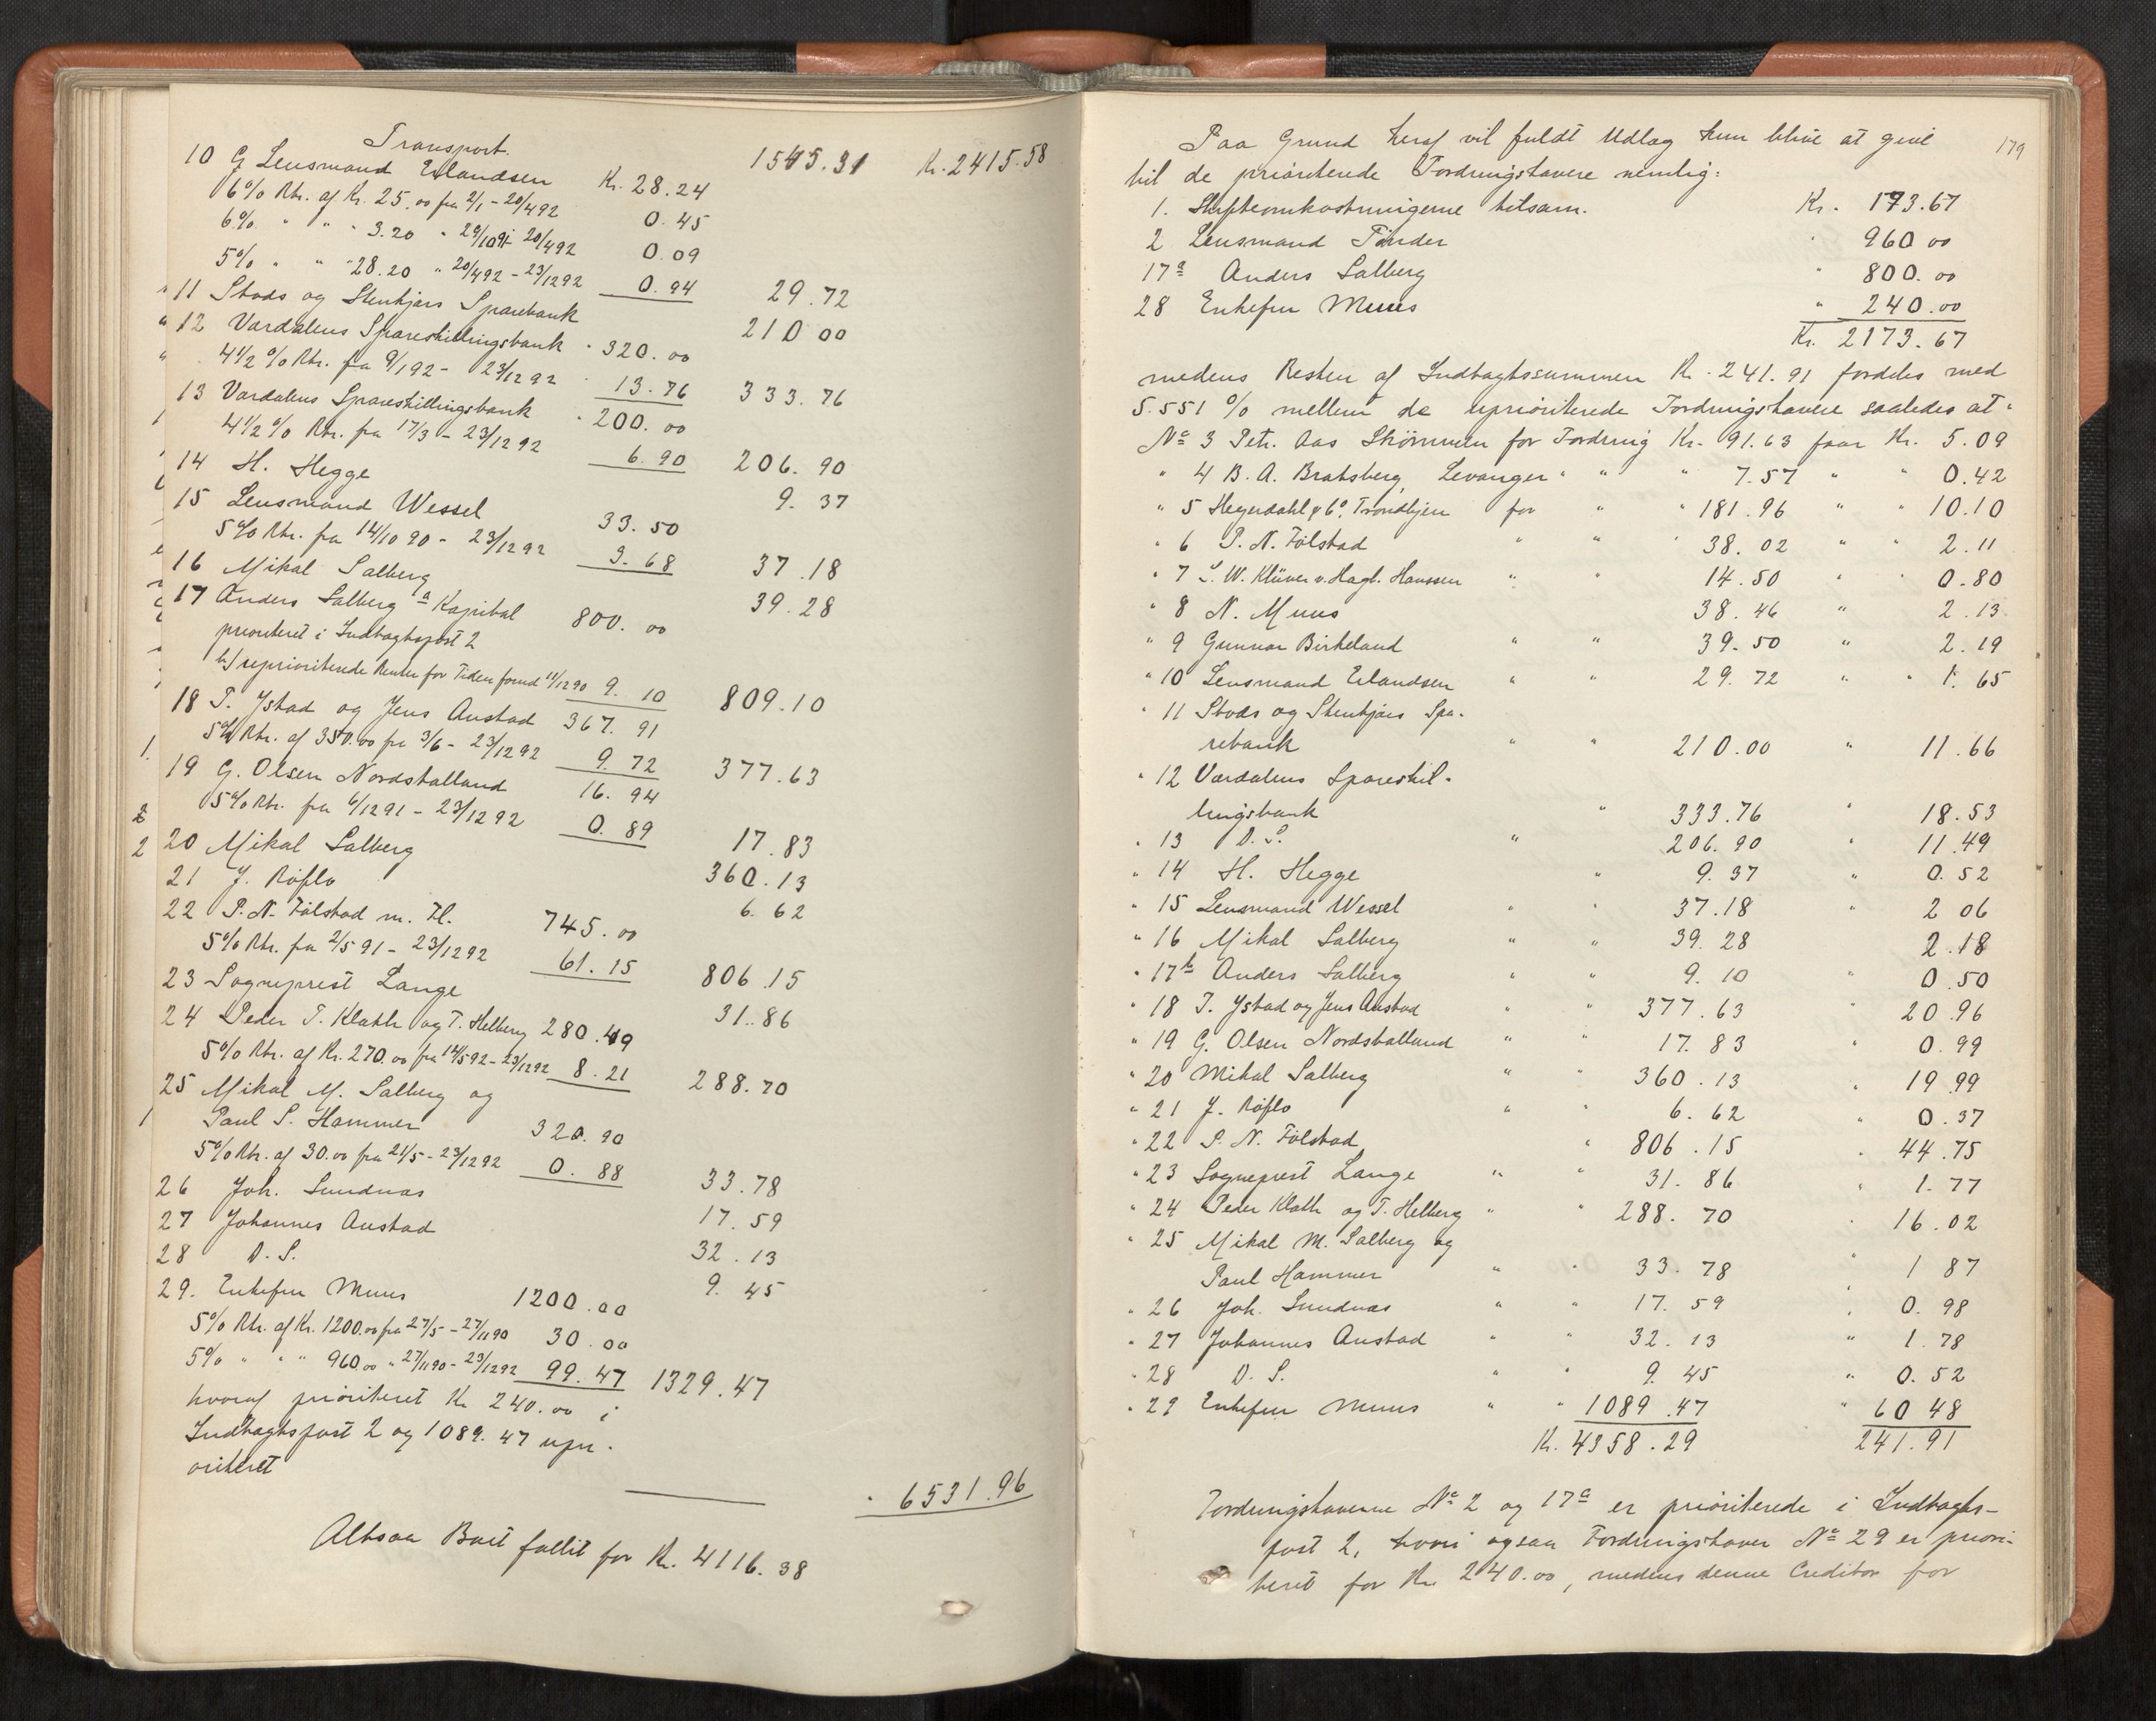 Transport. 1545.31 Kr. 2415.58
10 G Lensmand Erlandsen Kr. 28.24
6% Rtr. af Kr. 25.00 fra 2/1 - 20/4 92 0.45
6% " " " 3.20 " 29/10 91 - 20/4 92 0.09
5% " " " 28.20 " 20/4 92 - 23/12 92 0.94 29.72
11 Stods og Stenkjærs Sparebank 210 00
12 Værdalens Spareskillingsbank " 320.00
4 1/2 % Rtr. fra 9/1 92 - 23/12 92 13.76 333.76
13 Værdalens Spareskillingsbank " 200.00
4 1/2 % Rtr. fra 17/3 - 23/12 92 6.90 206.90
14 H. Hegge 9.37
15 Lensmand Wessel 33.50
5% Rtr. fra 14/10 90 - 23/12 92 3.68 37.18
16 Mikal Salberg 39.28
17 Anders Salberg a Kapital 800.00
prioriteret i Indtægtspost 2
b) uprioriterede Renter for Tiden forud 11/12 90 9.10 809.10
18 T. Ystad og Jens Austad 367.91
5% Rtr. af 350.00 fra 3/6 - 23/12 92 9.72 377.63
19 G. Olsen Nordstalland 16.94
5% Rtr. fra 6/12 91 - 23/12 92 0.89 17.83
20 Mikal Salberg 360.13
21 J. Røflo 6.62
22 P. N. Følstad m. Fl. 745.00
5% Rtr. fra 2/5 91 - 23/12 92 61.15 806.15
23 Sogneprest Lange 31.86
24 Peder T. Klath og T. Helberg 280.49
5% Rtr. af Kr. 270.00 fra 14/5 92 - 23/12 92 8.21 288.70
25 Mikal M. Salberg og
Paul S. Hammer 32.90
5% Rtr. af 30.00 fra 21/5 - 23/12 92 0.88 33.78
26 Joh. Sundnæs 17.59
27 Johannes Austad 32.13
28 D. S. 9.45
29. Enkefru Muus 1200.00
5% Rtr. af Kr. 1200.00 fra 27/5 - 27/11 90 30.00
5% " " " 960.00 " 27/11 90 - 23/12 92 99.47 1329.47
hvoraf prioriteret Kr. 240.00 i
Indtægtspost 2 og 1089.47 upri-
oriteret
" 6531.96
Altsaa Boet fallit for Kr. 4116.38
179
Paa Grund heraf vil fuldt Udlæg kun blive at give
til de prioriterede Fordringshavere nemlig:
1. Skifteomkostningerne tilsam. Kr. 173.67
2 Lensmand Tinder " 960 00
17 a Anders Salberg " 800.00
28 Enkefru Muus " 240.00
Kr. 2173.67
medens Resten af Indtægtssummen Kr. 241.91 fordeles med
5.551 % mellem de uprioriterede Fordringshavere saaledes at:
No 3 Petr. Aas Skrømmen for Fordring Kr. 91.63 faar Kr. 5.09
" 4 B. A. Bratsberg, Levanger " " " 7.57 " " 0.42
" 5 Heyerdahl & Co. Trondhjem for " " 181.96 " " 10.10
" 6 P. N. Følstad " " " 38.02 " " 2.11
" 7 L. W. Klüver v. Hagb. Hanssen " " 14.50 " " 0.80
" 8 N. Muus 38.46 " 2.13
" 9 Gunnar Birkeland " " 39.50 " 2.19
" 10 Lensmand Erlandsen " " 29.72 " " 1.65
" 11 Stods og Stenkjærs Spa-
rebank " " 210.00 " 11.66
" 12 Værdalens Spareskil-
lingsbank " 333.76 " 18.53
" 13 D. S. " 206.90 " 11.49
" 14 H. Hegge " 9.37 " 0.52
" 15 Lensmand Wessel " " 37.18 " 2 06
" 16 Mikal Salberg " " 39.28 2.18
" 17 b Anders Salberg " " 9.10 " 0.50
" 18 T. Ystad og Jens Austad " " 377.63 " 20.96
" 19 G. Olsen Nordstalland " " 17.83 " 0.99
" 20 Mikal Salberg " " 360.13 " 19.99
" 21 J. Røflo " " 6.62 " 0.37
" 22 P. N. Følstad " 806.15 " 44.75
" 23 Sogneprest Lange " " 31.86 " 1.77
" 24 Peder Klath og T. Helberg " " 288.70 " 16.02
" 25 Mikal M. Salberg og
Paul Hammer " " 33.78 " 1 87
" 26 Joh. Sundnæs " " 17.59 " 0.98
" 27 Johannes Austad " " 32.13 " 1.78
" 28 D. S. " " 9.45 " 0.52
" 29 Enkefru Muus " " 1089.47 " 60 48
Kr. 4358.29 241.91
Fordringshaverne No 2 og 17 a er prioriterede i Indtægts-
post 2, hvori ogsaa Fordringshaver No 29 er priori-
teret for Kr. 240.00, medens denne Creditor for